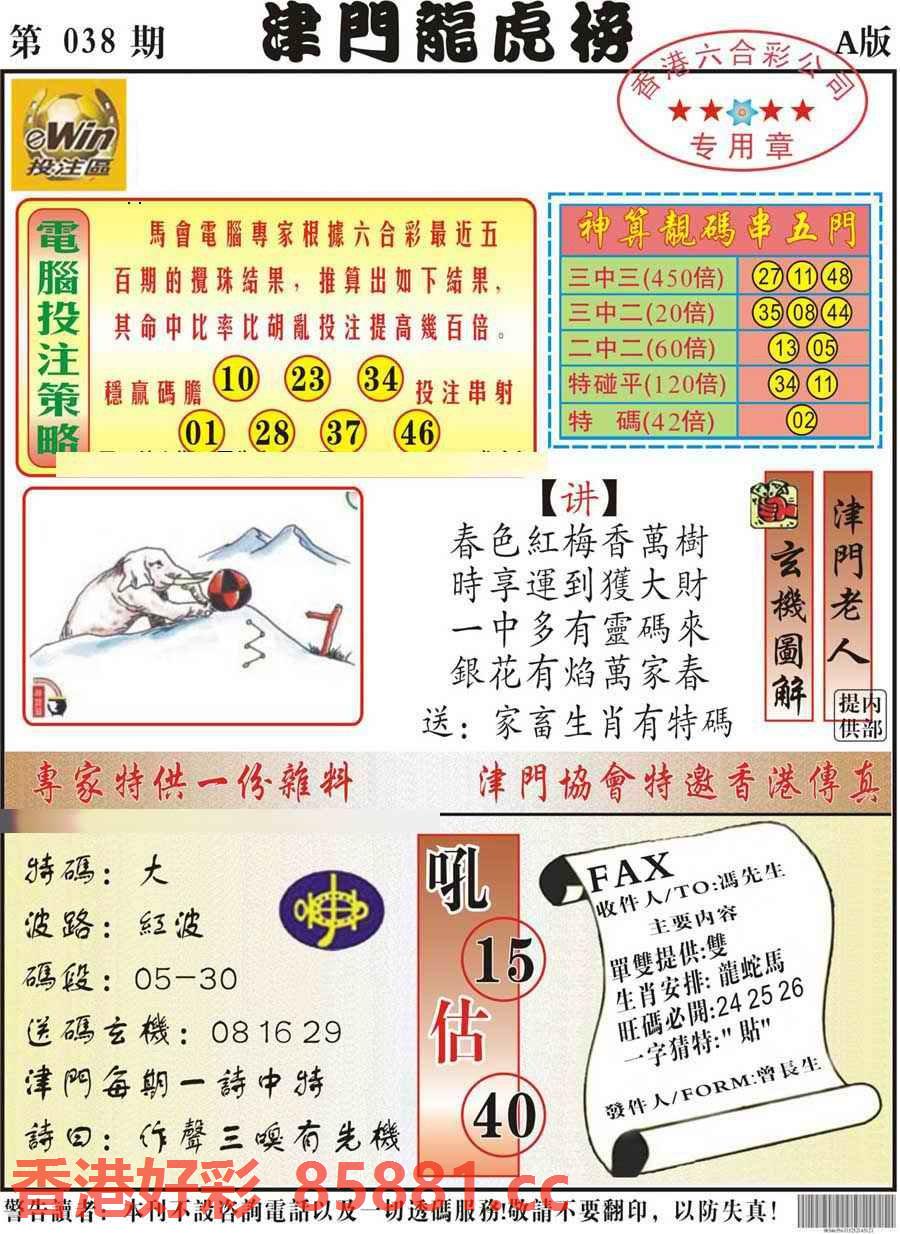 第 038 期
津門龍虎榜
A版
香港六合彩公司
专用章
eWin
投注區
電腦投注策略
馬會電腦專家根據六合彩最近五
百期的攪珠結果，推算出如下結果，
其命中比率比胡亂投注提高幾百倍。
穩贏碼膽 10 23 34 投注串射
01 28 37 46
神算靚碼串五門
三中三(450倍) 27 11 48
三中二(20倍) 35 08 44
二中二(60倍) 13 05
特碰平(120倍) 34 11
特 碼(42倍) 02
【讲】
春色紅梅香萬樹
時享運到獲大財
一中多有靈碼來
銀花有焰萬家春
送：家畜生肖有特碼
玄機圖解
津門老人
内部提供
專家特供一份雜料
津門協會特邀香港傳真
特碼：大
波路：紅波
碼段：05-30
送碼玄機：08 16 29
津門每期一詩中特
詩曰：作聲三喚有先機
吼
15
估
40
FAX
收件人/TO:馮先生
主要内容
單雙提供:雙
生肖安排:龍蛇馬
旺碼必開:24 25 26
一字猜特:"貼"
發件人/FORM:曾長生
香港好彩 85881.cc
警告讀者：本刊不設咨詢電話以及一切透碼服務!敬請不要翻印，以防失真!